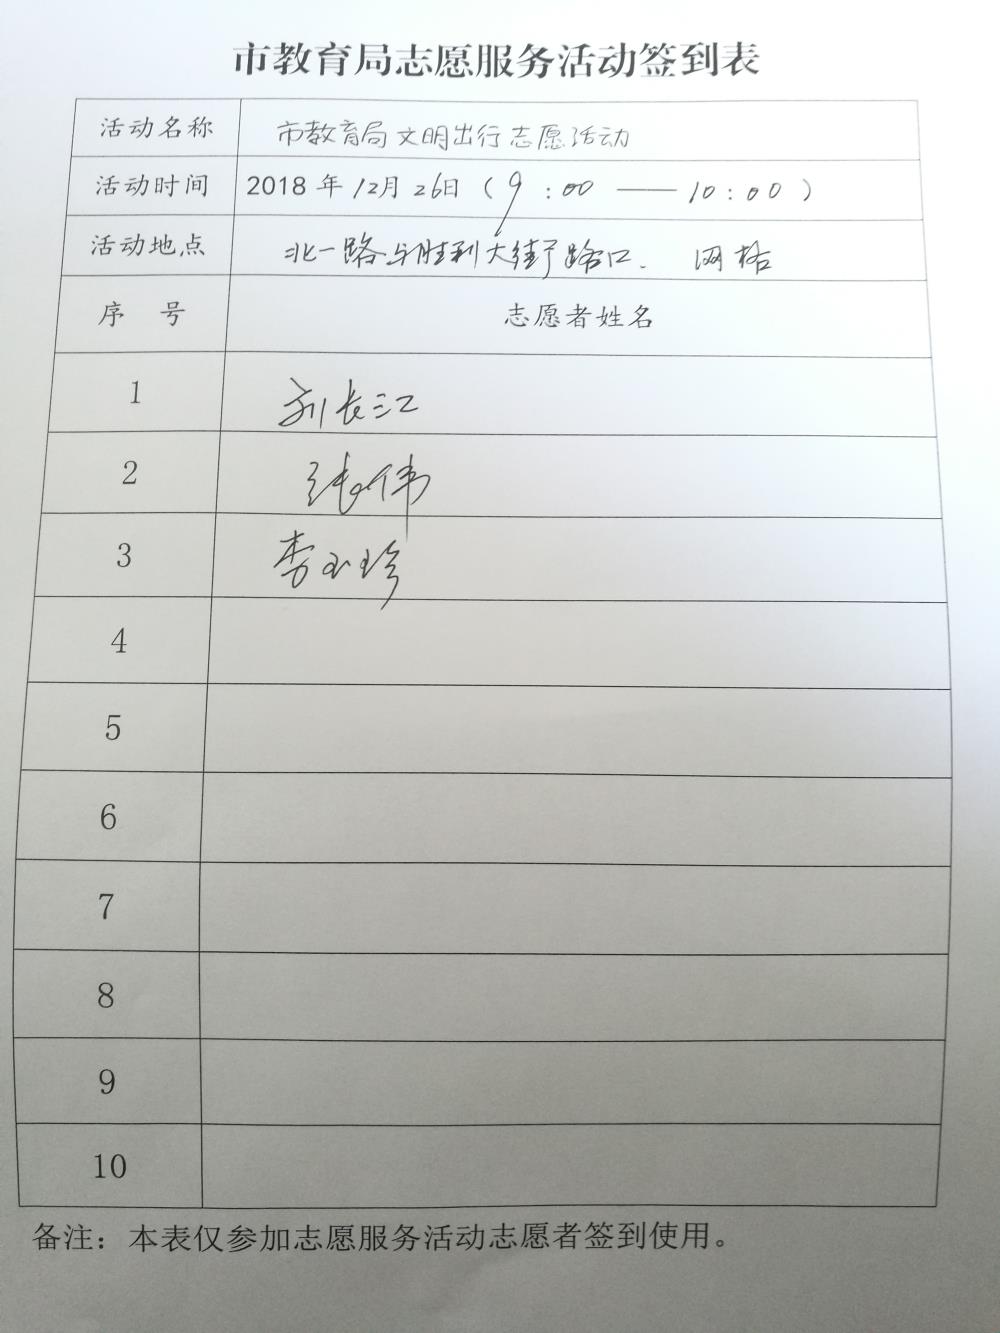 市教育局志愿服务活动签到表
活动名称 市教育局文明出行志愿活动
活动时间 2018 年 12月 26日（9:00 —— 10:00）
活动地点 北一路与胜利大街路口. 网格
序 号 志愿者姓名
1 刘长江
2 张伟
3 李玉珍
4
5
6
7
8
9
10
备注：本表仅参加志愿服务活动志愿者签到使用。